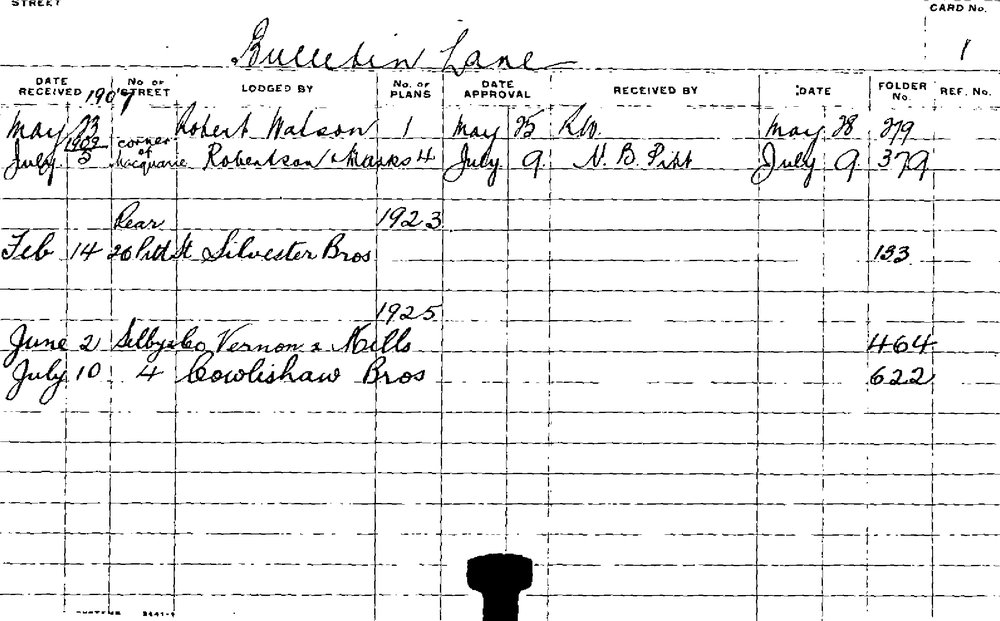 STREET
CARD No.
Bulletin Lane
1
DATE RECEIVED No. OF STREET LODGED BY No. OF PLANS DATE APPROVAL RECEIVED BY DATE FOLDER No. REF. No.
1907
May 23 Robert Watson 1 May 25 R.W. May 28 279
1909
July 5 corner of Macquarie Robertson & Marks 4 July 9 N. B. Pitt July 9 379
Rear 1923
Feb 14 26 Pitt St Silvester Bros 133
1925
June 2 Selby & Co Vernon & Mills 464
July 10 4 Cowlishaw Bros 622